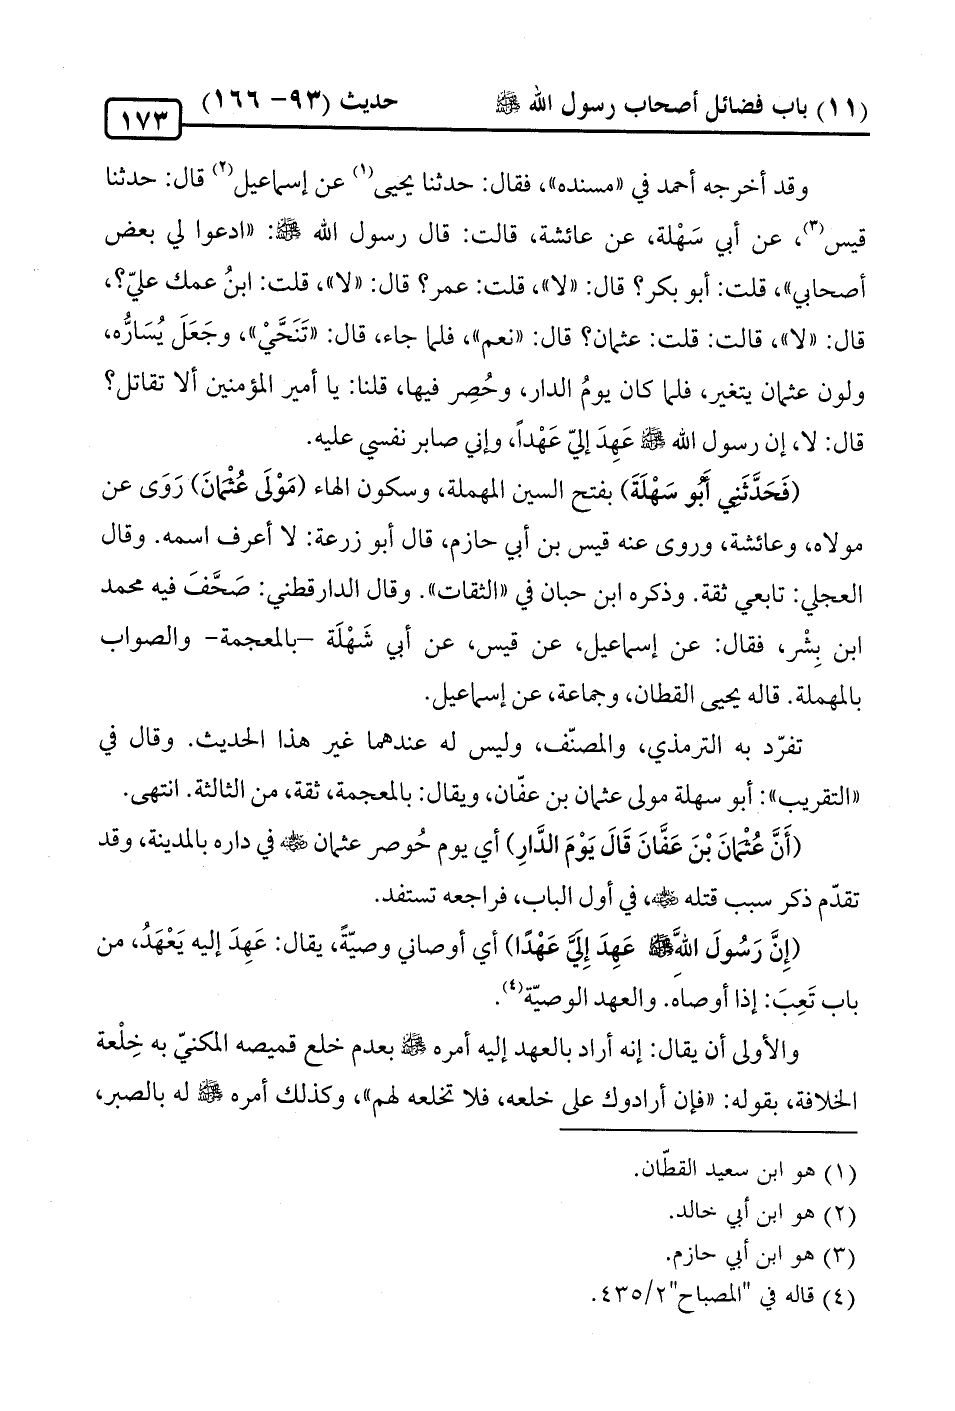 (١١) باب فضائل أصحاب رسول الله ﷺ حديث (٩٣- ١٦٦)
١٧٣
وقد أخرجه أحمد في «مسنده»، فقال: حدثنا يحيى(١) عن إسماعيل(٢) قال: حدثنا
قيس(٣)، عن أبي سَهْلة، عن عائشة، قالت: قال رسول الله ﷺ: «ادعوا لي بعض
أصحابي»، قلت: أبو بكر؟ قال: «لا»، قلت: عمر؟ قال: «لا»، قلت: ابنُ عمك عليّ؟،
قال: «لا»، قالت: قلت: عثمان؟ قال: «نعم»، فلما جاء، قال: «تَنَحَّيْ»، وجَعَلَ يُسَارُّه،
ولون عثمان يتغير، فلما كان يومُ الدار، وحُصِر فيها، قلنا: يا أمير المؤمنين ألا تقاتل؟
قال: لا، إن رسول الله ﷺ عَهِدَ إليّ عَهْداً، وإني صابر نفسي عليه.
(فَحَدَّثَنِي أَبُو سَهْلَةَ) بفتح السين المهملة، وسكون الهاء (مَوْلَى عُثْمَانَ) رَوَى عن
مولاه، وعائشة، وروى عنه قيس بن أبي حازم، قال أبو زرعة: لا أعرف اسمه. وقال
العجلي: تابعي ثقة. وذكره ابن حبان في «الثقات». وقال الدارقطني: صَحَّفَ فيه محمد
ابن بِشْر، فقال: عن إسماعيل، عن قيس، عن أبي شَهْلَة –بالمعجمة- والصواب
بالمهملة. قاله يحيى القطان، وجماعة، عن إسماعيل.
تفرّد به الترمذي، والمصنّف، وليس له عندهما غير هذا الحديث. وقال في
«التقريب»: أبو سهلة مولى عثمان بن عفّان، ويقال: بالمعجمة، ثقة، من الثالثة. انتهى.
(أَنَّ عُثْمَانَ بْنَ عَفَّانَ قَالَ يَوْمَ الدَّارِ) أي يوم حُوصر عثمان ﵁ في داره بالمدينة، وقد
تقدّم ذكر سبب قتله ﵁، في أول الباب، فراجعه تستفد.
(إِنَّ رَسُولَ اللهِ ﷺ عَهِدَ إِلَيَّ عَهْدًا) أي أوصاني وصيّةً، يقال: عَهِدَ إليه يَعْهَدُ، من
باب تَعِبَ: إذا أوصاه. والعهد الوصيّة(٤).
والأولى أن يقال: إنه أراد بالعهد إليه أمره ﷺ بعدم خلع قميصه المكنيّ به خِلْعة
الخلافة، بقوله: «فإن أرادوك على خلعه، فلا تخلعه لهم»، وكذلك أمره ﷺ له بالصبر،
(١) هو ابن سعيد القطّان.
(٢) هو ابن أبي خالد.
(٣) هو ابن أبي حازم.
(٤) قاله في "المصباح" ٢/ ٤٣٥.